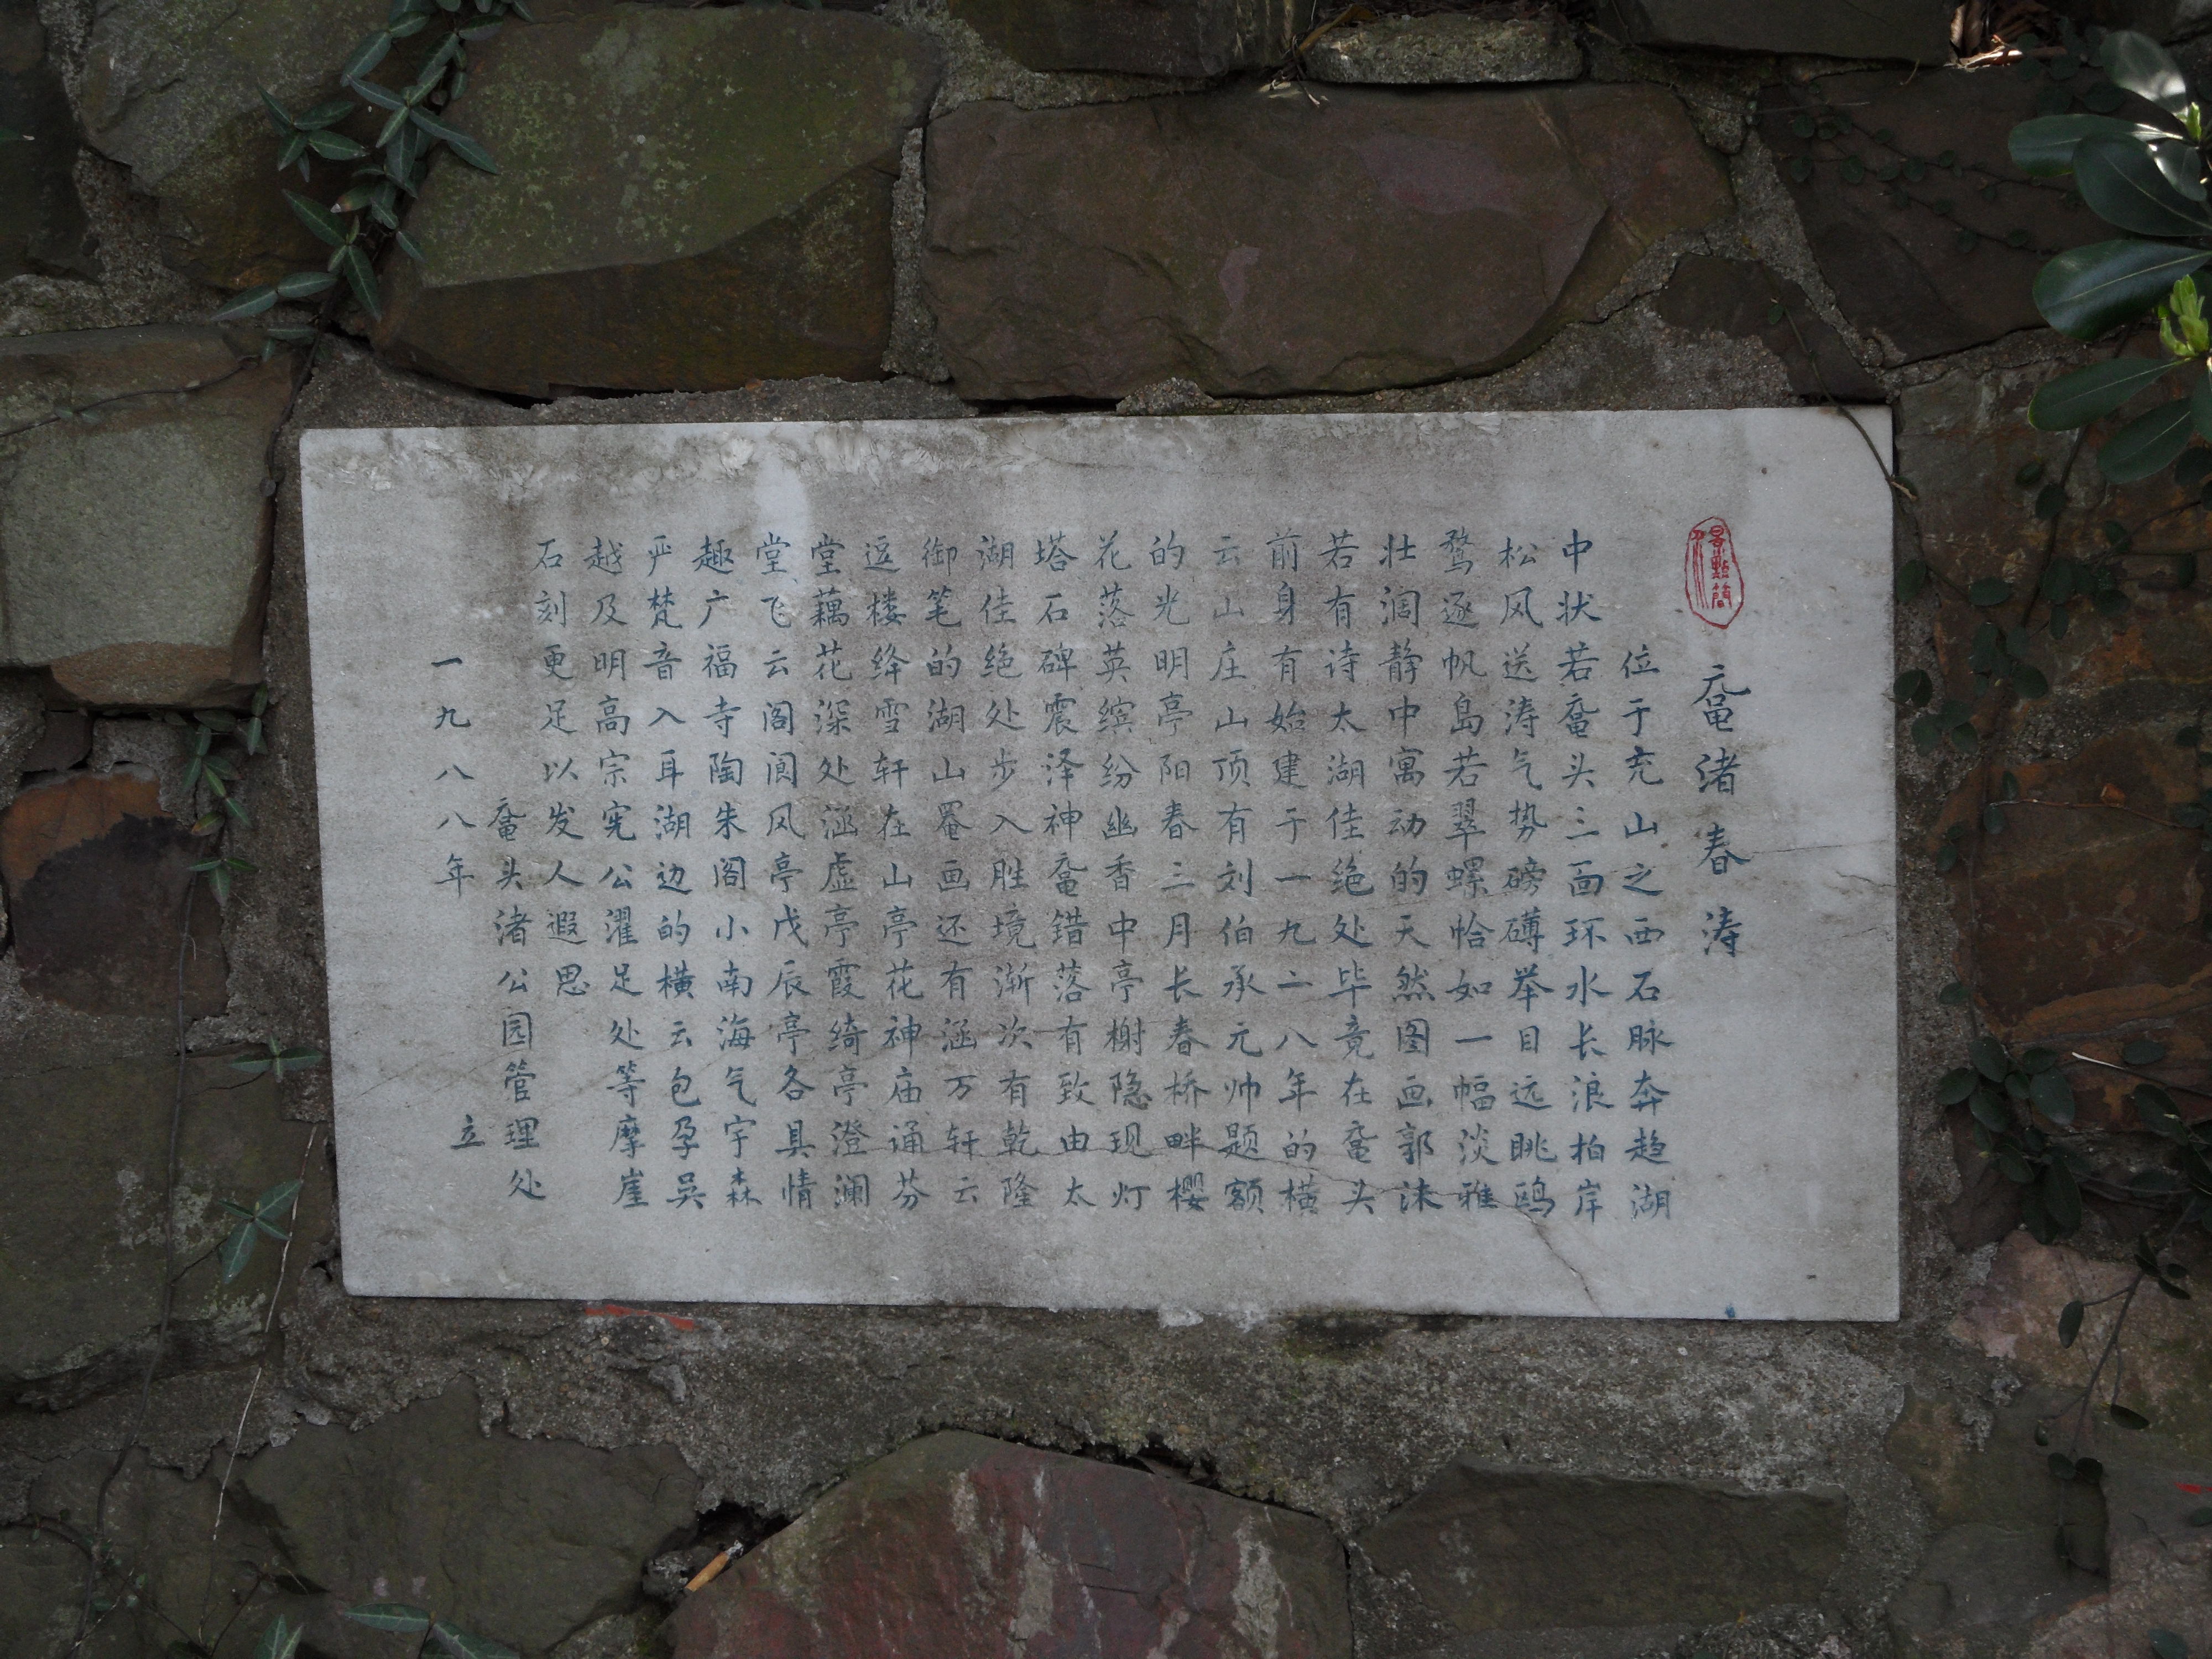 景点简介
鼋渚春涛
位于充山之西石脉奔趋湖
中状若鼋头三面环水长浪拍岸
松风送涛气势磅礴举目远眺鸥
鹜逐帆岛若翠螺恰如一幅淡雅
壮阔静中寓动的天然图画郭沫
若有诗太湖佳绝处毕竟在鼋头
前身有始建于一九二八年的横
云山庄山顶有刘伯承元帅题额
的光明亭阳春三月长春桥畔樱
花落英缤纷幽香中亭榭隐现灯
塔石碑震泽神鼋错落有致由太
湖佳绝处步入胜境渐次有乾隆
御笔的湖山罨画还有涵万轩云
逗楼绛雪轩在山亭花神庙诵芬
堂藕花深处涵虚亭霞绮亭澄澜
堂飞云阁阆风亭戊辰亭各具情
趣广福寺陶朱阁小南海气宇森
严梵音入耳湖边的横云包孕吴
越及明高宗宪公濯足处等摩崖
石刻更足以发人遐思
鼋头渚公园管理处
一九八八年 立